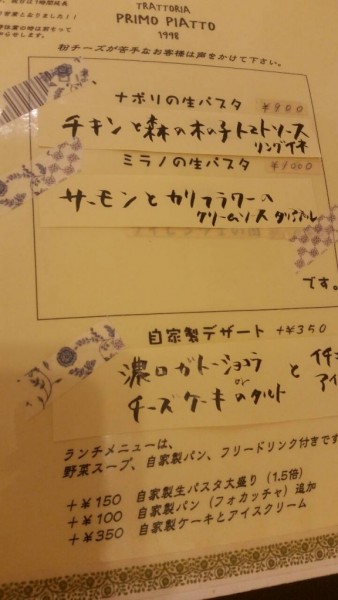 TRATTORIA
PRIMO PIATTO
1998
粉チーズが苦手なお客様は声をかけて下さい。
ナポリの生パスタ ¥900
チキンと森の木の子トマトソース
リングイネ
ミラノの生パスタ ¥1000
サーモンとカリフラワーの
クリームソース
です。
自家製デザート +¥350
濃口ガトーショコラ
or
チーズケーキのタルト
と
ランチメニューは、
野菜スープ、自家製パン、フリードリンク付きです
+¥150 自家製生パスタ大盛り（1.5倍）
+¥100 自家製パン（フォカッチャ）追加
+¥350 自家製ケーキとアイスクリーム